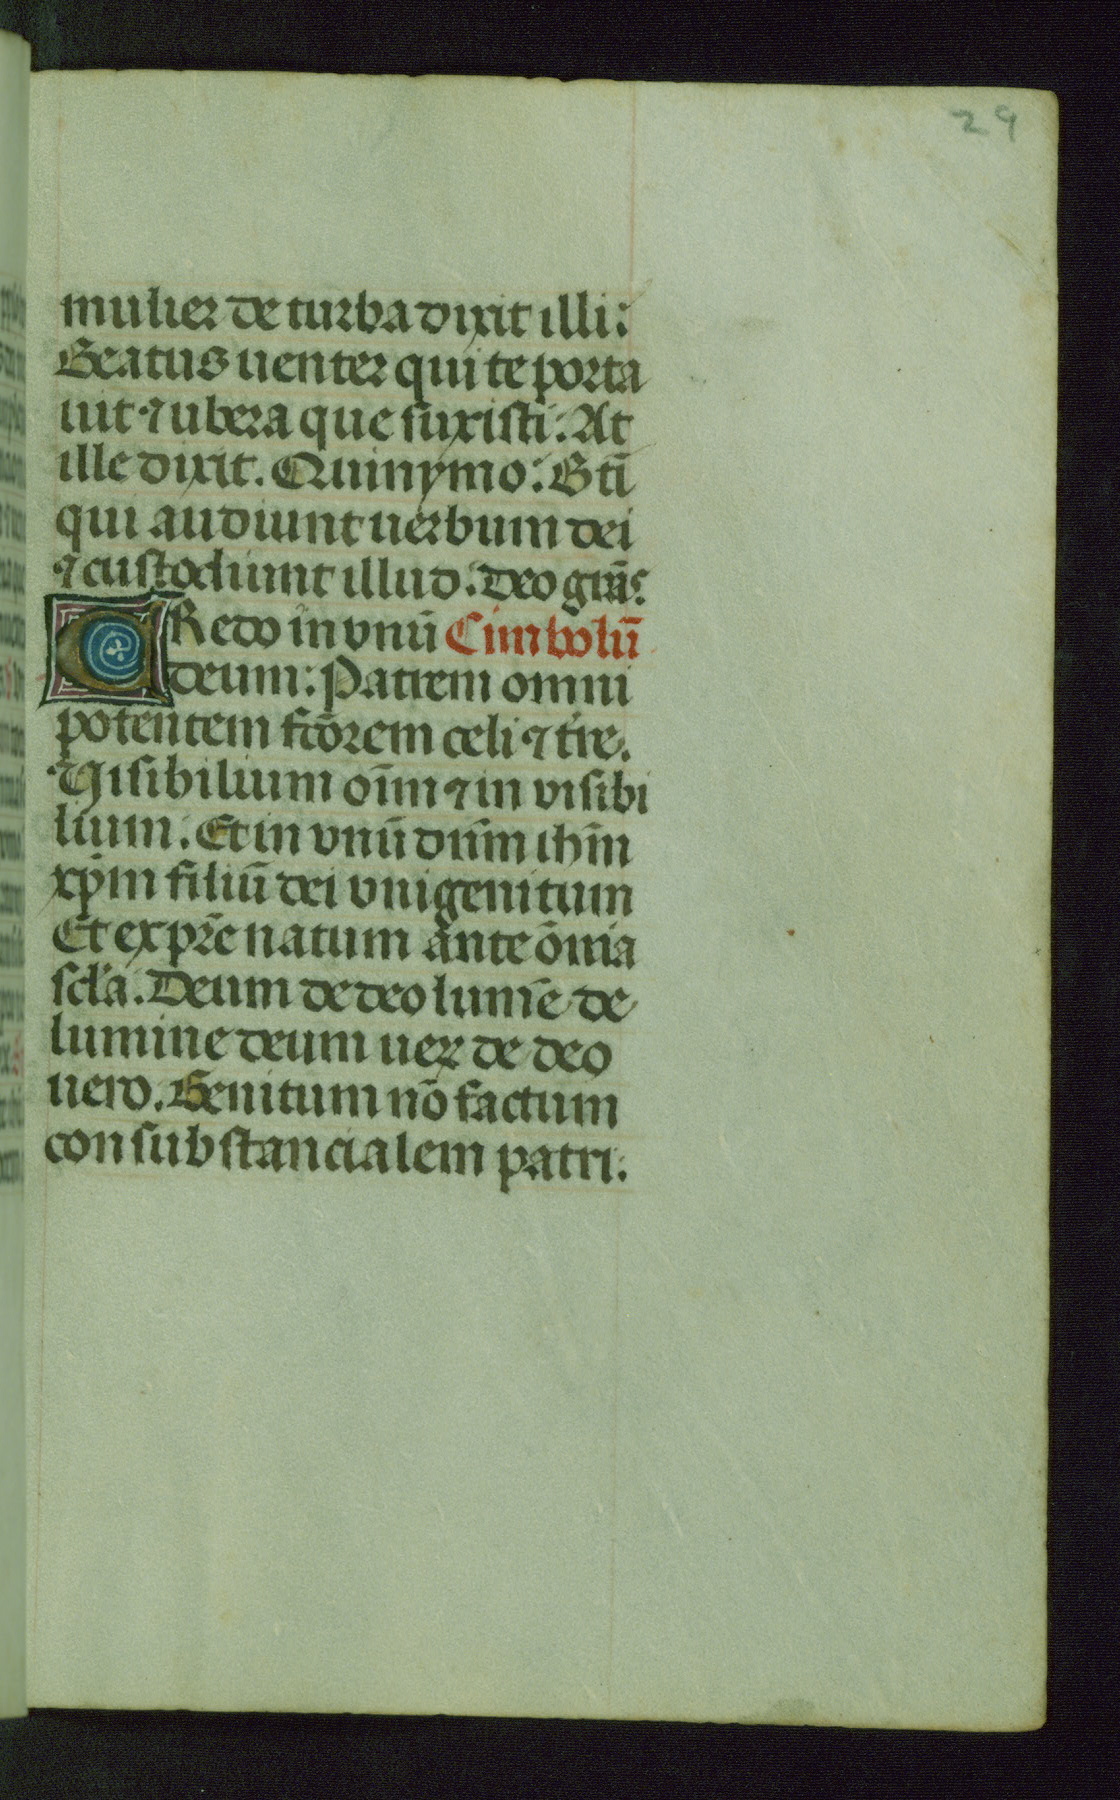 29
mulier de turba dixit illi:
Beatus uenter qui te porta
uit ⁊ ubera que suxisti: At
ille dixit. Quinymo: Bti̅
qui audiunt uerbum dei
⁊ custodiunt illud. Deo gra̅s.
CRedo in vnu̅ Cimbolu̅
deum: Patrem omni
potentem fc̅orem celi ⁊ t̅re.
Uisibilium oi̅m ⁊ in visibi
lium. Et in vnu̅ dn̅m ihm̅
xp̅m filiu̅ dei vnigenitum
Et ex pr̅e natum ante o̅nia
scl̅a. Deum de deo lumi̅e de
lumine deum uer de deo
uero. Genitum no̅ factum
consubstancialem patri.